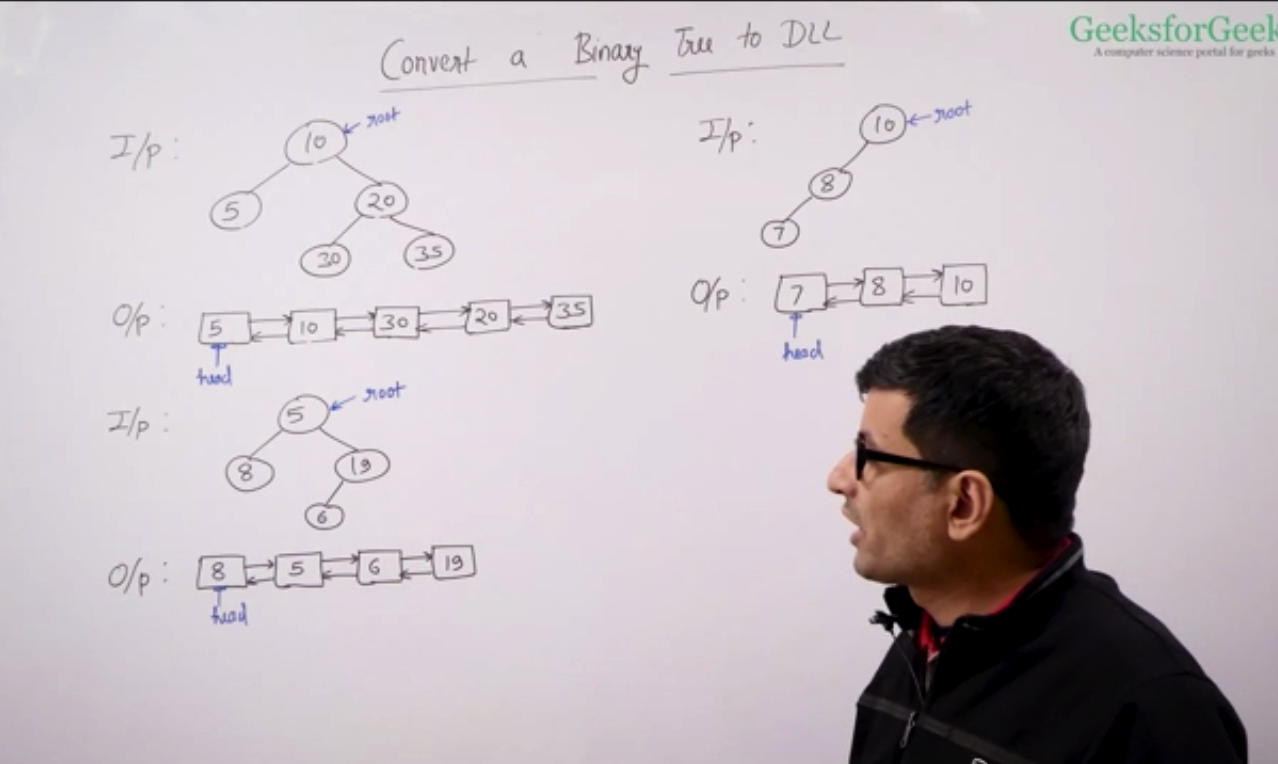 GeeksforGeek
A computer science portal for geeks
Convert a Binary Tree to DLL
I/p :
10
root
5
20
30
35
O/p :
5
10
30
20
35
head
I/p :
5
root
8
19
6
O/p :
8
5
6
19
head
I/p :
10
root
8
7
O/p :
7
8
10
head